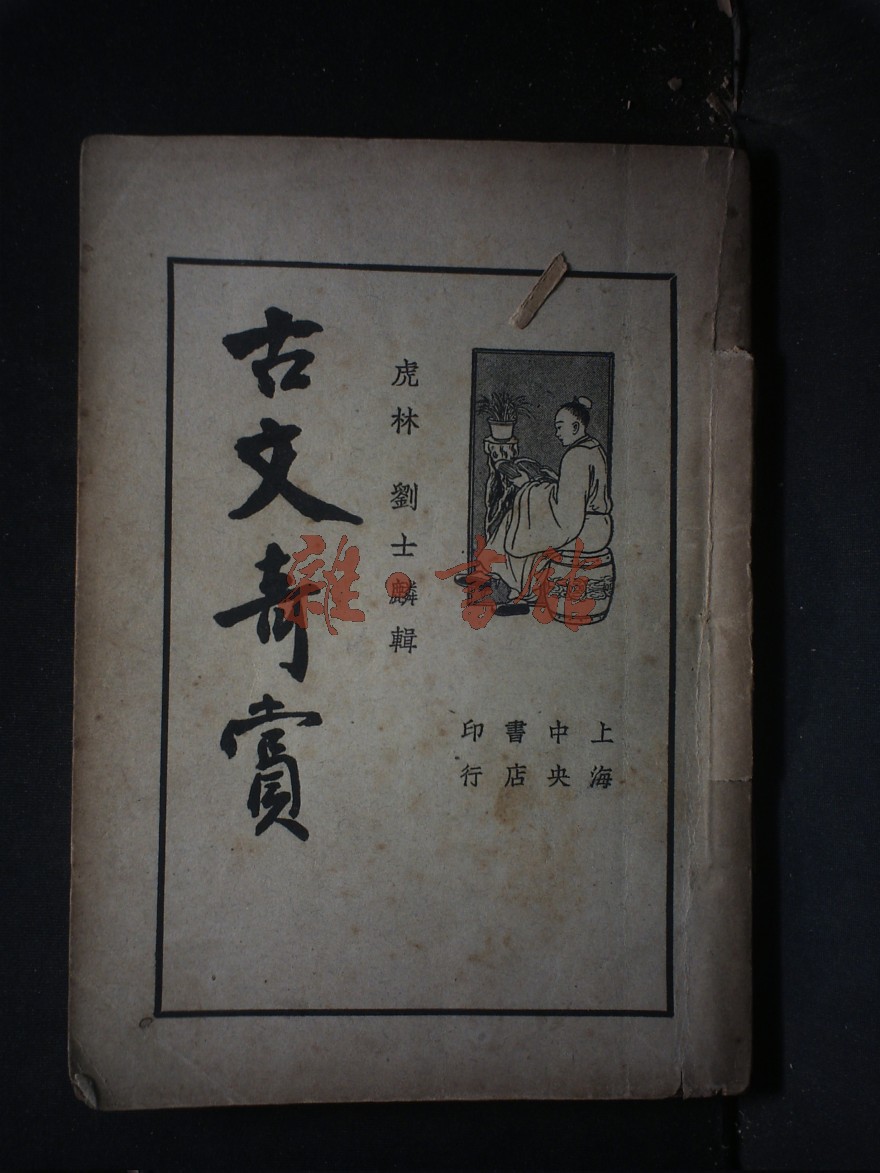 上海
中央
書店
印行
虎林 劉士麟輯
古文奇賞
雜·書館